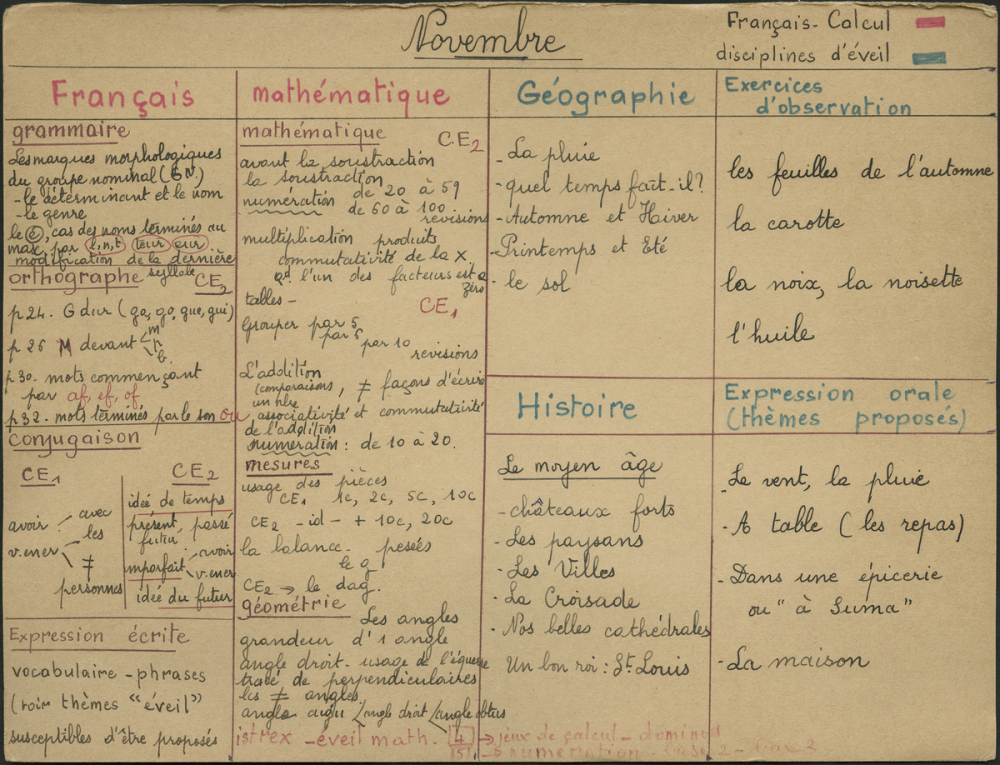 Novembre
Français - Calcul
disciplines d'éveil
Français
grammaire
Les marques morphologiques
du groupe nominal (G N.)
- le déterminant et le nom
- le genre
le e, cas des noms terminés au
masc par l, n, t teur eur
modification de la dernière
syllabe
orthographe CE2
p 24. G dur (ga, go, gue, gui)
p 26 M devant m
p
b.
p 30. mots commençant
par af, ef, of
p 32. mots terminés par le son ou
conjugaison
CE1
avoir
v. en er
avec
les
≠
personnes
CE2
idée de temps
présent, passé
futur
imparfait avoir
v. en er
idée du futur
Expression écrite
vocabulaire - phrases
(voir thèmes "éveil"
susceptibles d'être proposés
mathématique
mathématique CE2
avant la soustraction
la soustraction
numération de 20 à 59
de 60 à 100
revisions
multiplication produits
commutativité de la x
qd l'un des facteurs est a
zéro
tables -
CE1
Grouper par 5
par 6
par 10
revisions
L'addition
(comparaisons, ≠ façons d'écrire
un nbre
associativité et commutativité
de l'addition
numération : de 10 à 20.
mesures
usage des pièces
CE1 1c, 2c, 5c, 10c
CE2 - id - + 10c, 20c
la balance. pesées
le g
CE2 → le dag.
géométrie
Les angles
grandeur d'1 angle
angle droit - usage de l'équerre
tracé de perpendiculaires
les ≠ angles
angle aigu / angle droit / angle obtus
- éveil math. 4 → jeux de calcul - dominos
15 → numération
Géographie
- La pluie
- quel temps fait-il?
- Automne et Hiver
- Printemps et Eté
- le sol
Histoire
Le moyen âge
- châteaux forts
- Les paysans
- Les Villes
- La Croisade
- Nos belles cathédrales
Un bon roi : St Louis
Exercices
d'observation
les feuilles de l'automne
la carotte
la noix, la noisette
l'huile
Expression orale
(thèmes proposés)
- Le vent, la pluie
- A table (les repas)
- Dans une épicerie
ou "à Suma"
- La maison